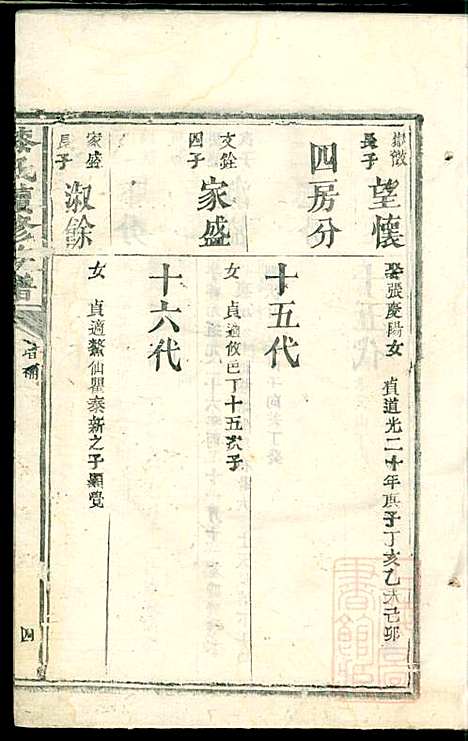 嶽徵
長子
望懷
娶張慶陽女 貞道光二十年庚子丁亥乙未己卯
四房分
十五代
文銓
四子
家盛
女 貞適攸邑丁十五次子
十六代
家盛
長子
淑餘
女 貞適鰲仙瞿泰新之子顯覺
氏續修支譜
四